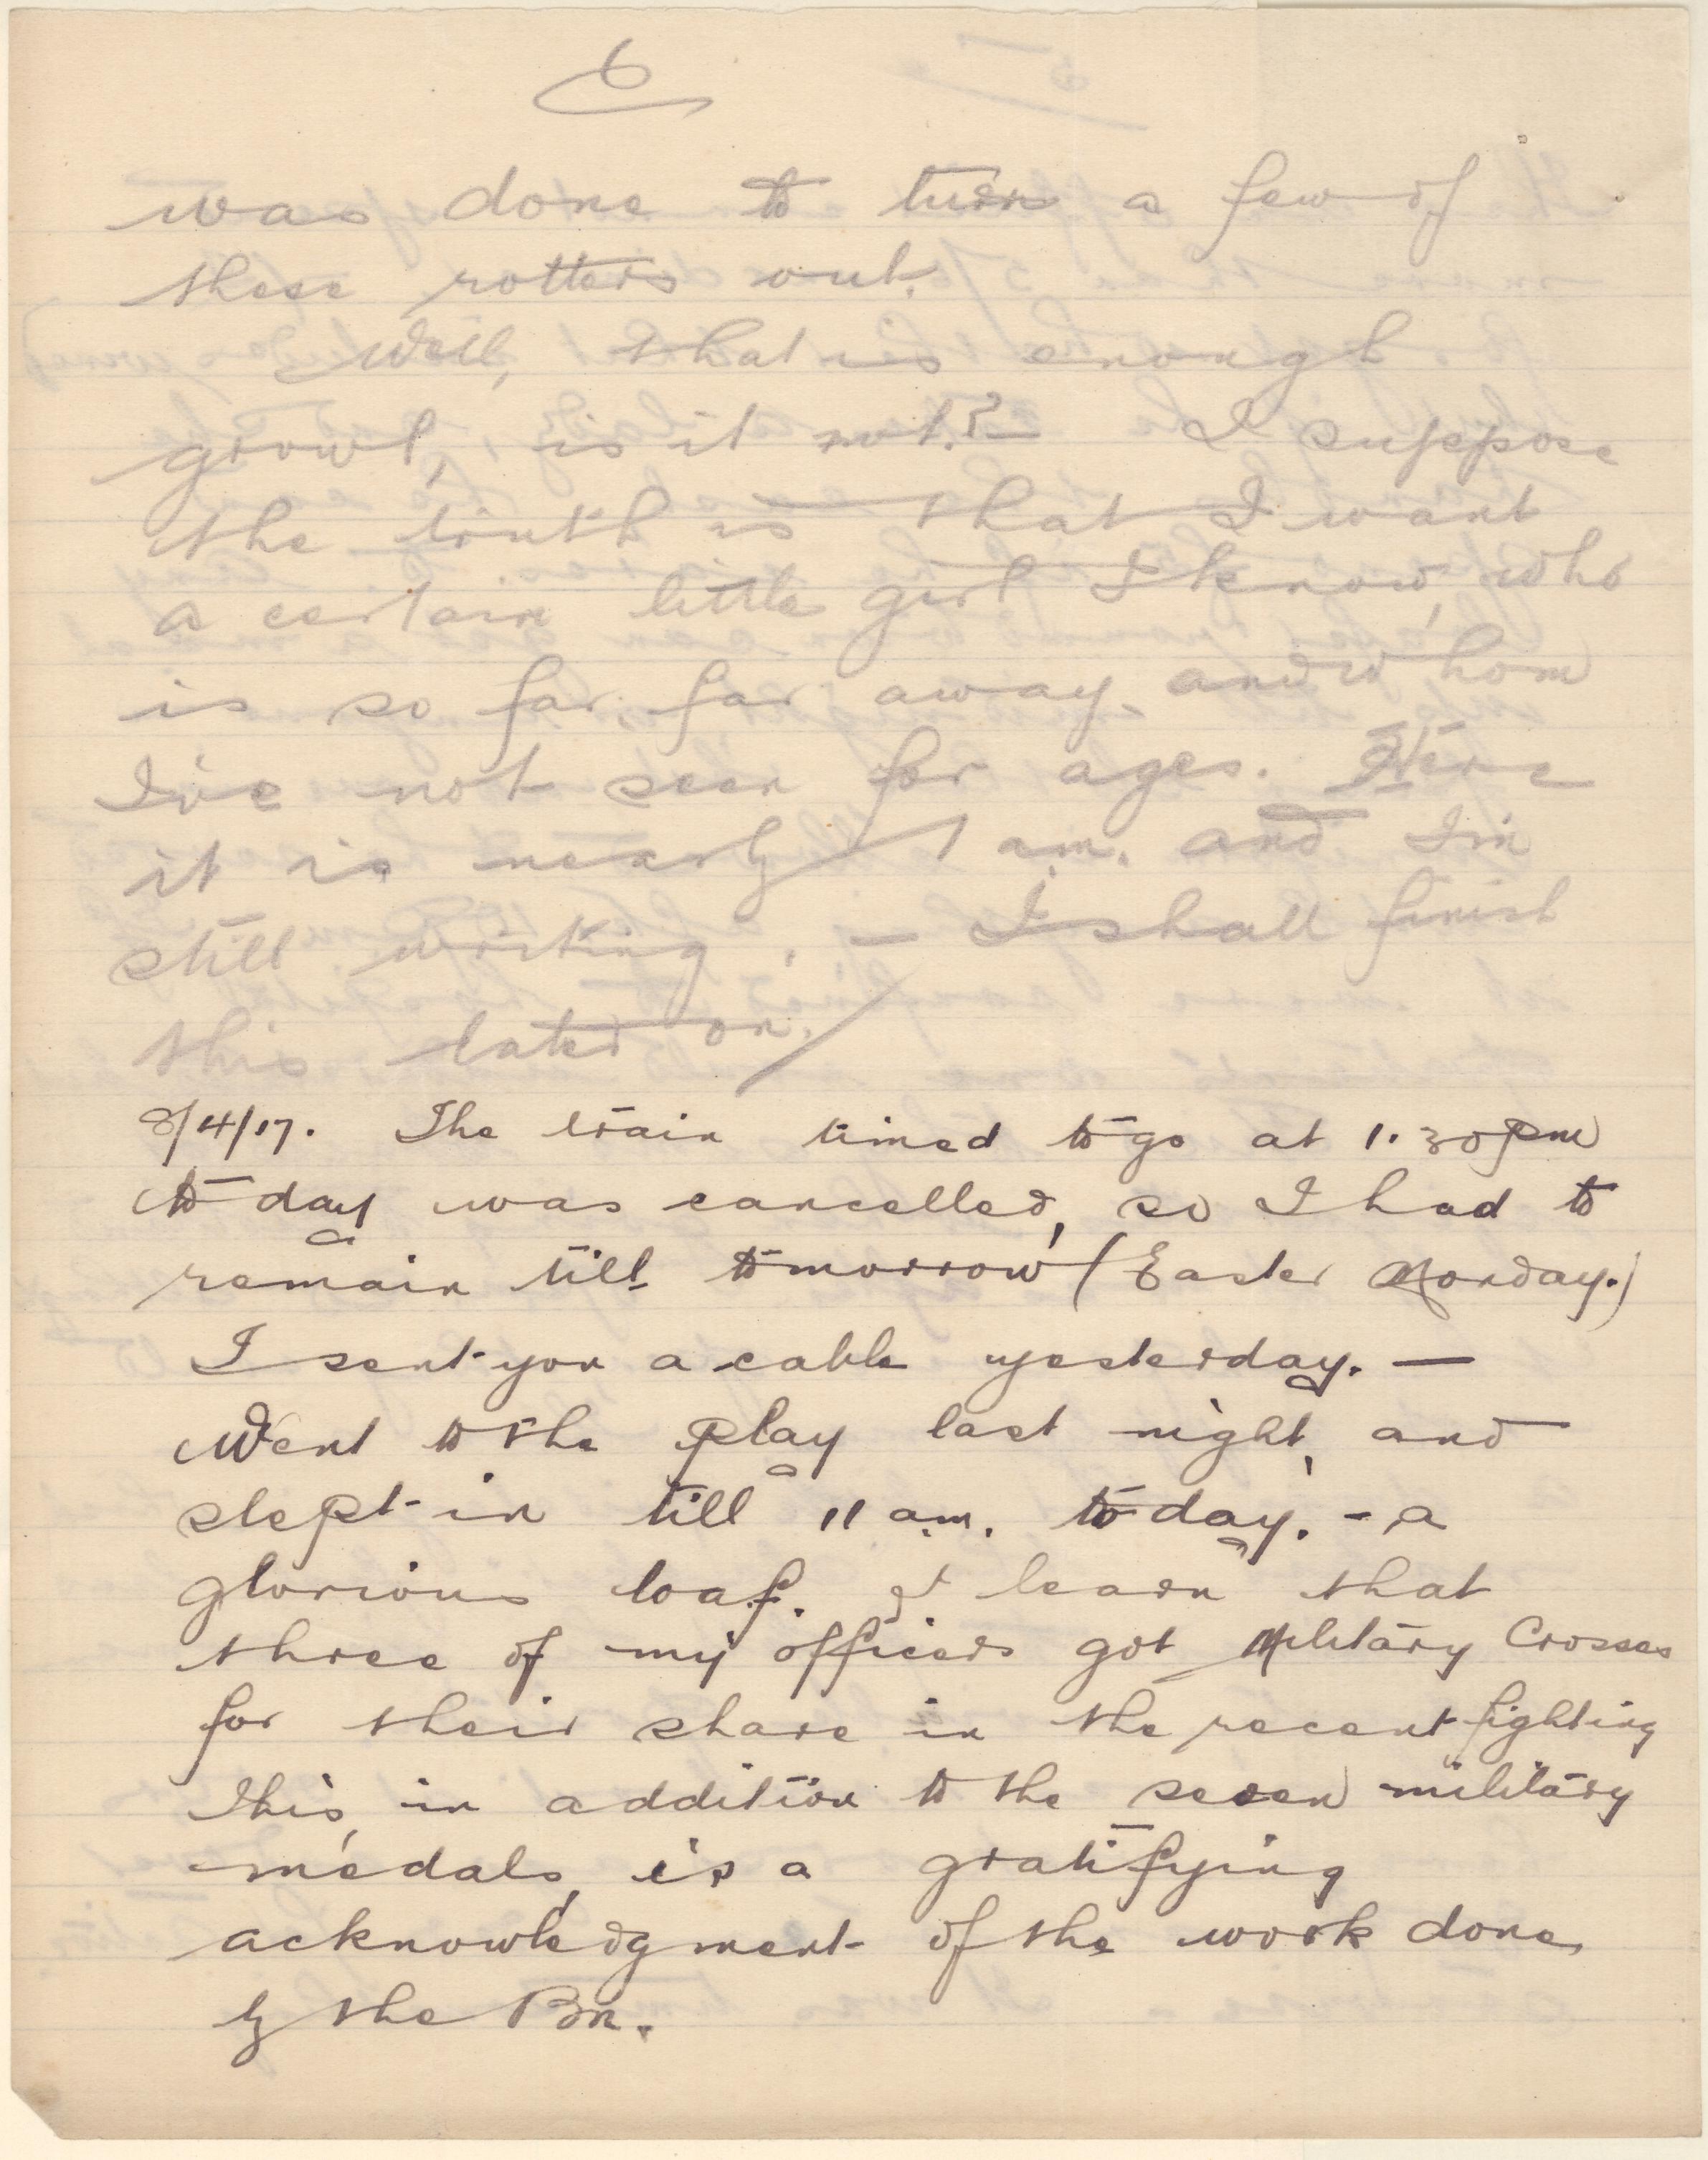 6
was done to turn a few of
these rotters out.
Well, that is enough
growl, is it not? — I suppose
the truth is that I want
a certain little girl I know, who
is so far, far away, and whom
I've not seen for ages. Here
it is nearly 1 am. and I'm
still working. — I shall finish
this later on.
8/4/17. The train timed to go at 1.30 pm
to-day was cancelled, so I had to
remain till tomorrow (Easter Monday.)
I sent you a cable yesterday. —
Went to the play last night, and
slept-in till 11 am. to-day. - a
glorious loaf. I learn that
three of my officers got Military Crosses
for their share in the recent fighting
This, in addition to the seven military
medals, is a gratifying
acknowledgment of the work done
by the Bn.